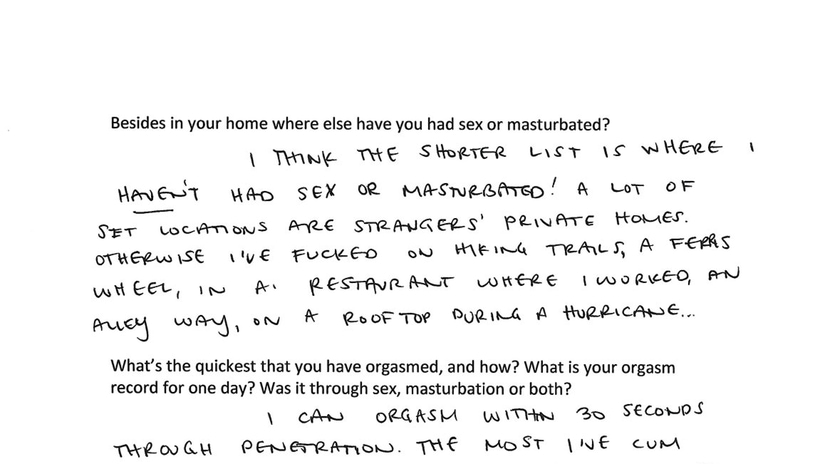 Besides in your home where else have you had sex or masturbated?
I THINK THE SHORTER LIST IS WHERE I
HAVEN'T HAD SEX OR MASTURBATED! A LOT OF
SET LOCATIONS ARE STRANGERS' PRIVATE HOMES.
OTHERWISE I'VE FUCKED ON HIKING TRAILS, A FERRIS
WHEEL, IN A. RESTAURANT WHERE I WORKED, AN
ALLEY WAY, ON A ROOFTOP DURING A HURRICANE...
What's the quickest that you have orgasmed, and how? What is your orgasm
record for one day? Was it through sex, masturbation or both?
I CAN ORGASM WITHIN 30 SECONDS
THROUGH PENETRATION. THE MOST I'VE CUM